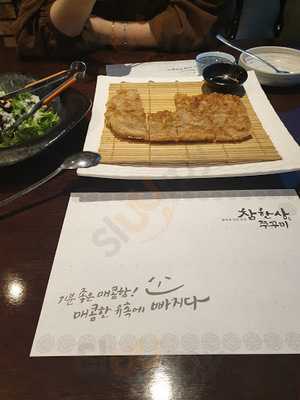 참한상
쭈꾸미
기분 좋은 매콤함!
매콤한 유혹에 빠지다